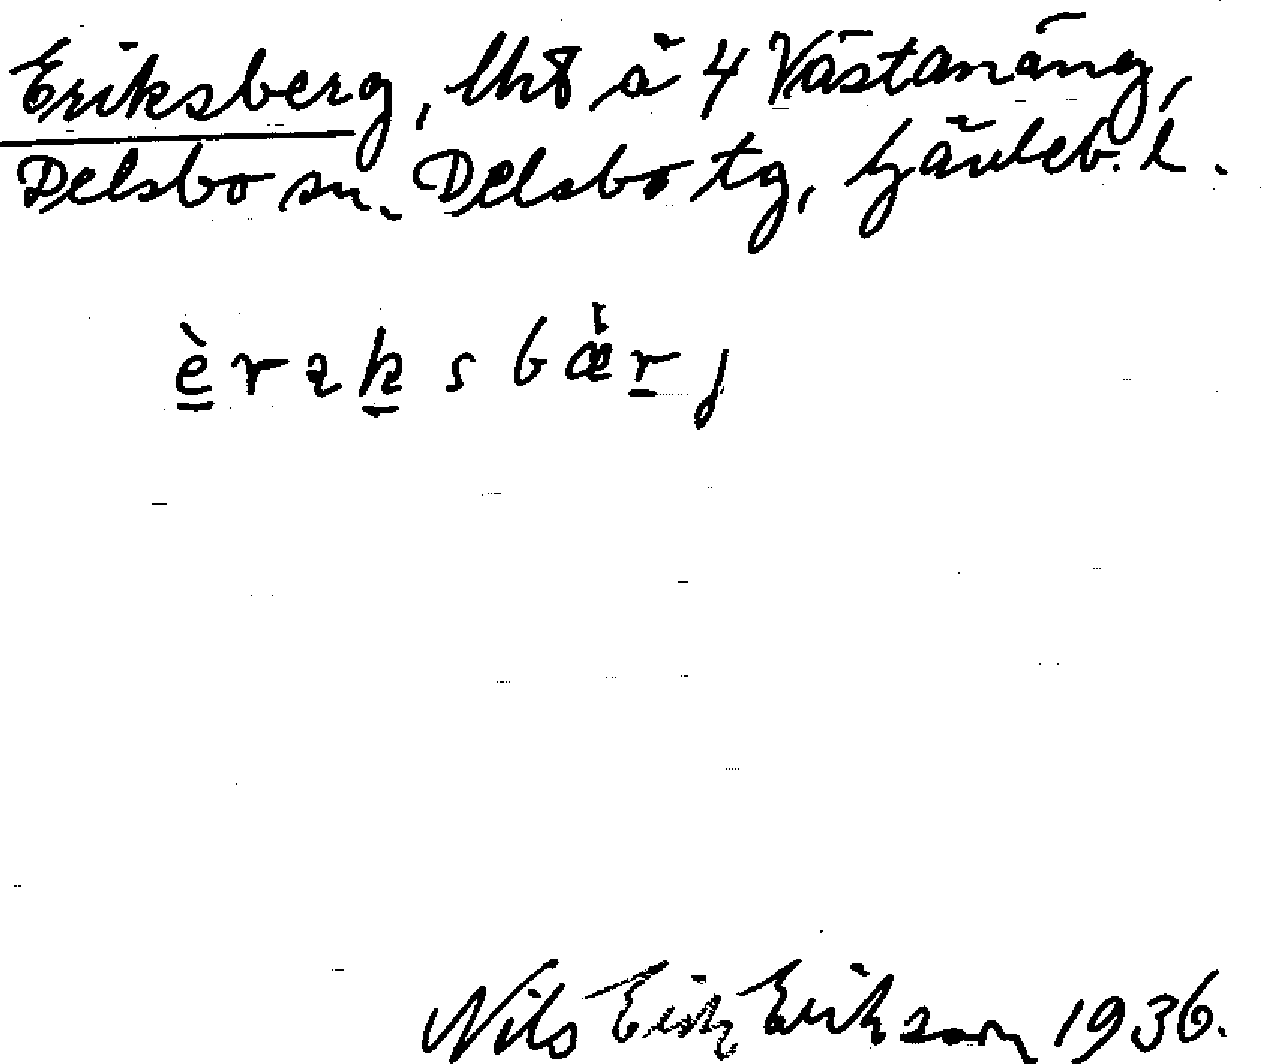 Eriksberg, lht å 4 Västanäng,
Delsbo sn. Delsbo tg, Gävleb. l.
èrɩksbæ̀rj
Nils Erik Erikson 1936.